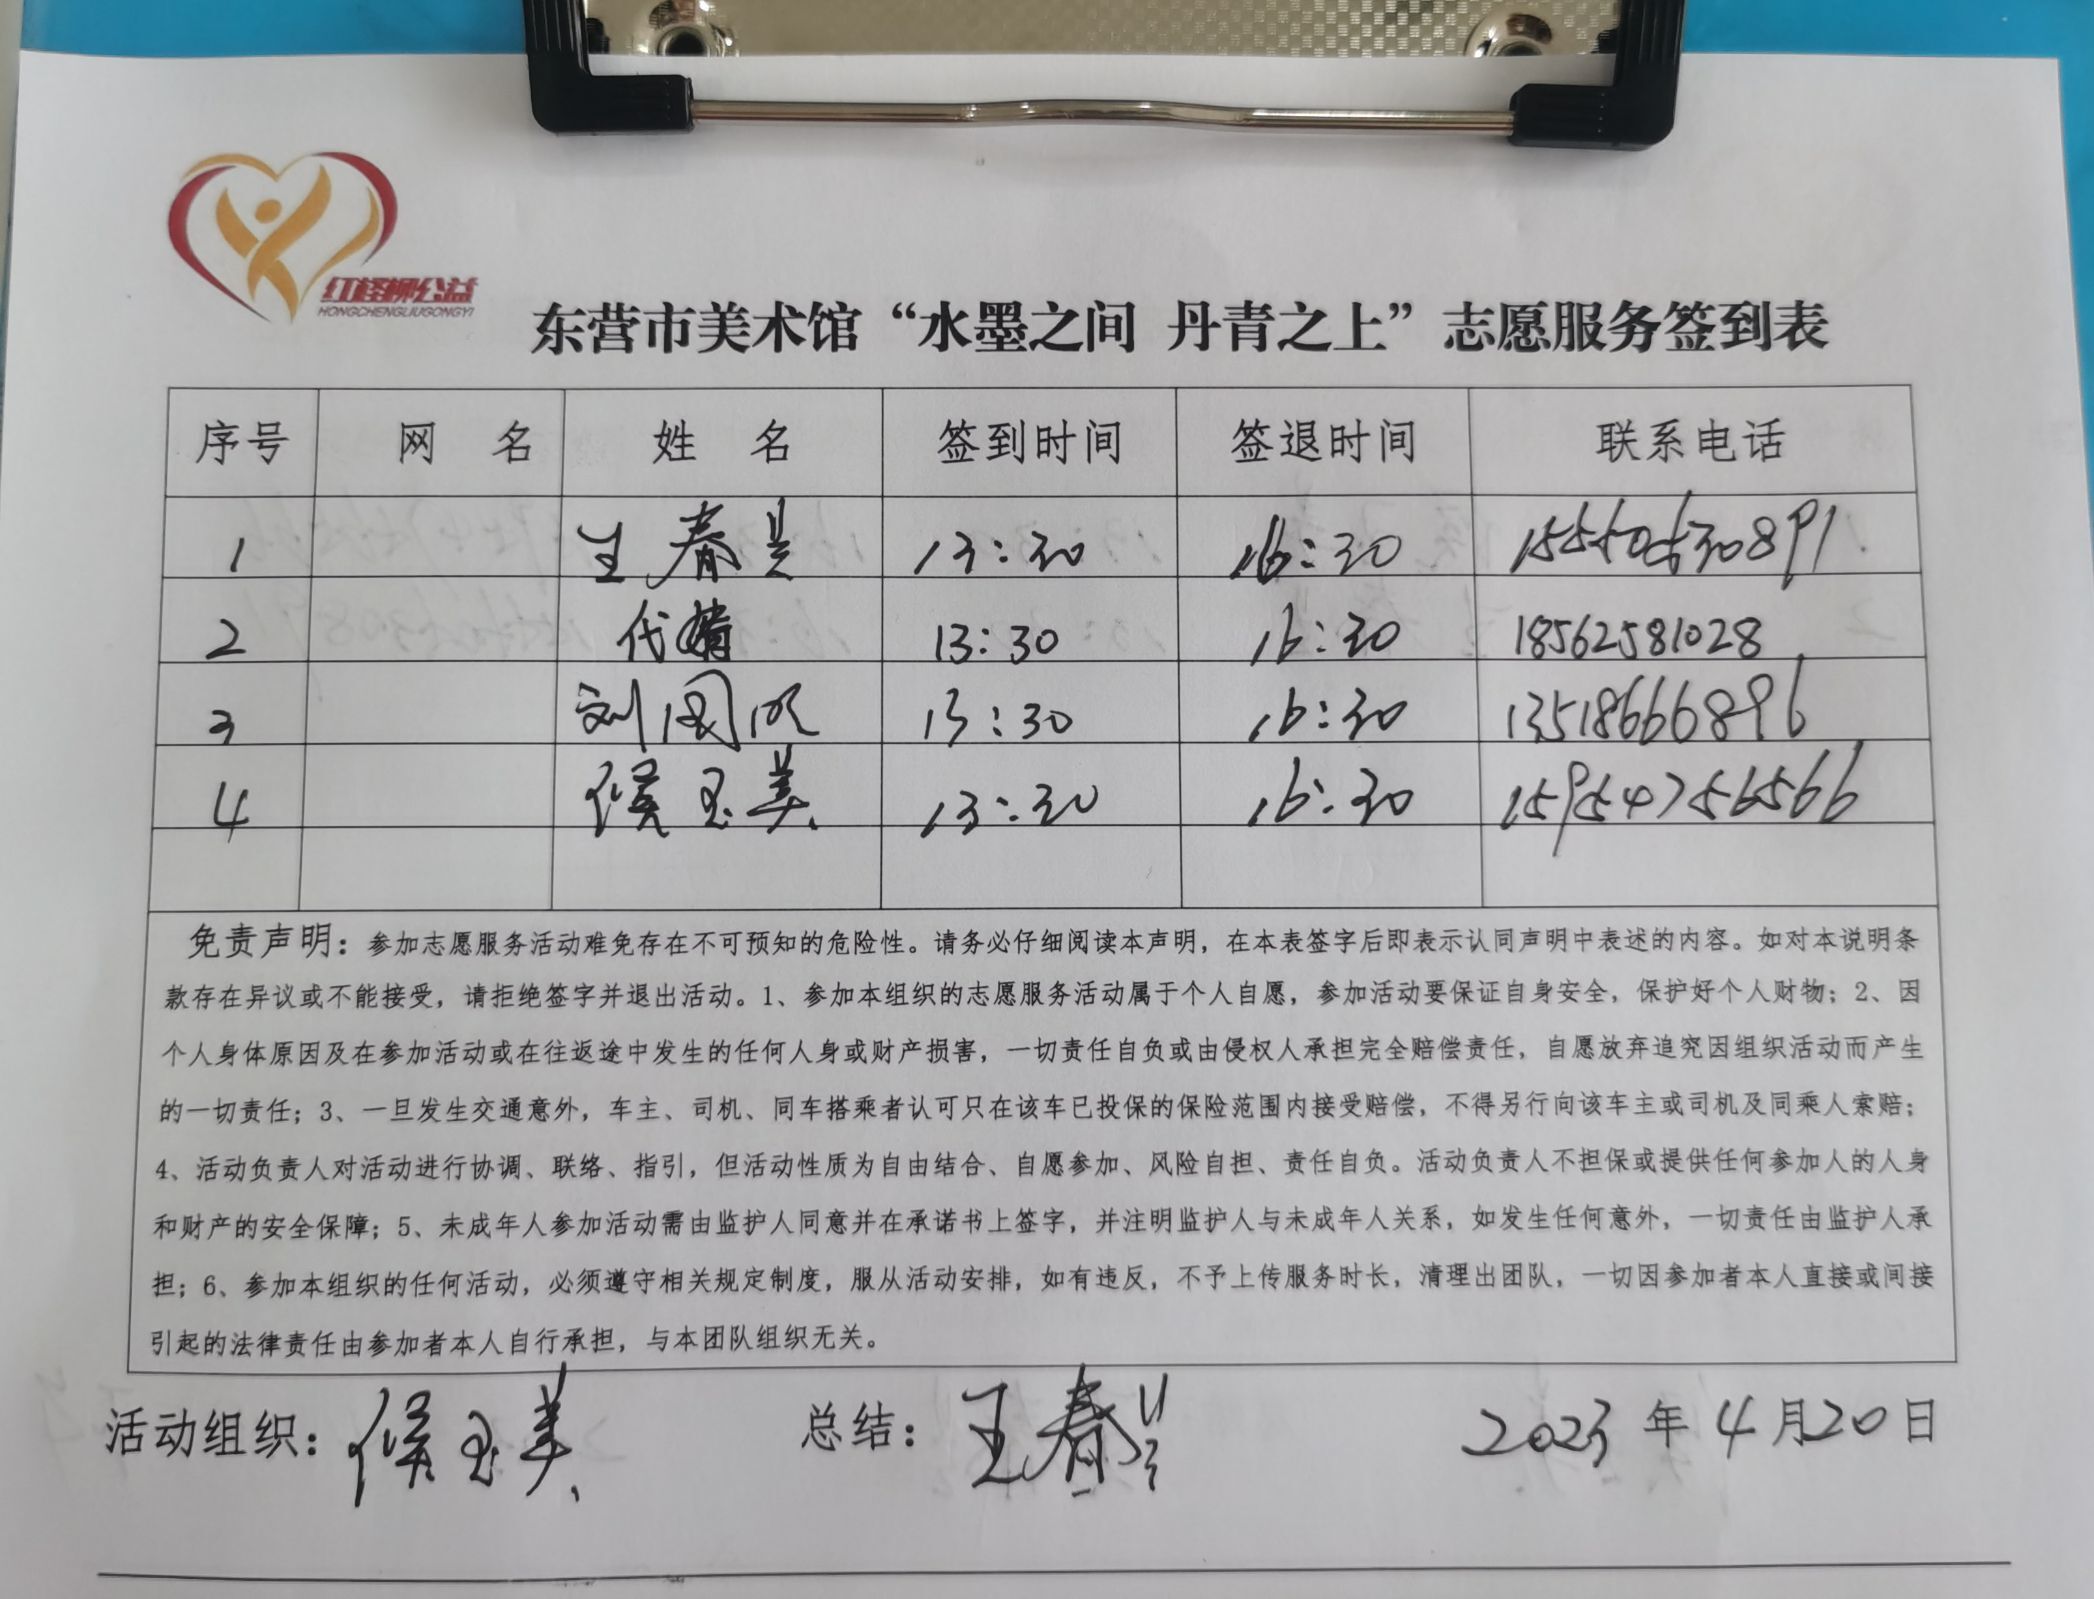 红柽柳公益
HONGCHENGLIUGONGYI
东营市美术馆“水墨之间 丹青之上”志愿服务签到表
序号 网 名 姓 名 签到时间 签退时间 联系电话
1 王春 13:30 16:30
2 代 13:30 16:30 18562581028
3 刘国 13:30 16:30 13518666896
4 侯玉美 13:30 16:30 15954756566
免责声明：参加志愿服务活动难免存在不可预知的危险性。请务必仔细阅读本声明，在本表签字后即表示认同声明中表述的内容。如对本说明条
款存在异议或不能接受，请拒绝签字并退出活动。1、参加本组织的志愿服务活动属于个人自愿，参加活动要保证自身安全，保护好个人财物；2、因
个人身体原因及在参加活动或在往返途中发生的任何人身或财产损害，一切责任自负或由侵权人承担完全赔偿责任，自愿放弃追究因组织活动而产生
的一切责任；3、一旦发生交通意外，车主、司机、同车搭乘者认可只在该车已投保的保险范围内接受赔偿，不得另行向该车主或司机及同乘人索赔；
4、活动负责人对活动进行协调、联络、指引，但活动性质为自由结合、自愿参加、风险自担、责任自负。活动负责人不担保或提供任何参加人的人身
和财产的安全保障；5、未成年人参加活动需由监护人同意并在承诺书上签字，并注明监护人与未成年人关系，如发生任何意外，一切责任由监护人承
担；6、参加本组织的任何活动，必须遵守相关规定制度，服从活动安排，如有违反，不予上传服务时长，清理出团队，一切因参加者本人直接或间接
引起的法律责任由参加者本人自行承担，与本团队组织无关。
活动组织：侯玉美 总结：王春 2023年4月20日